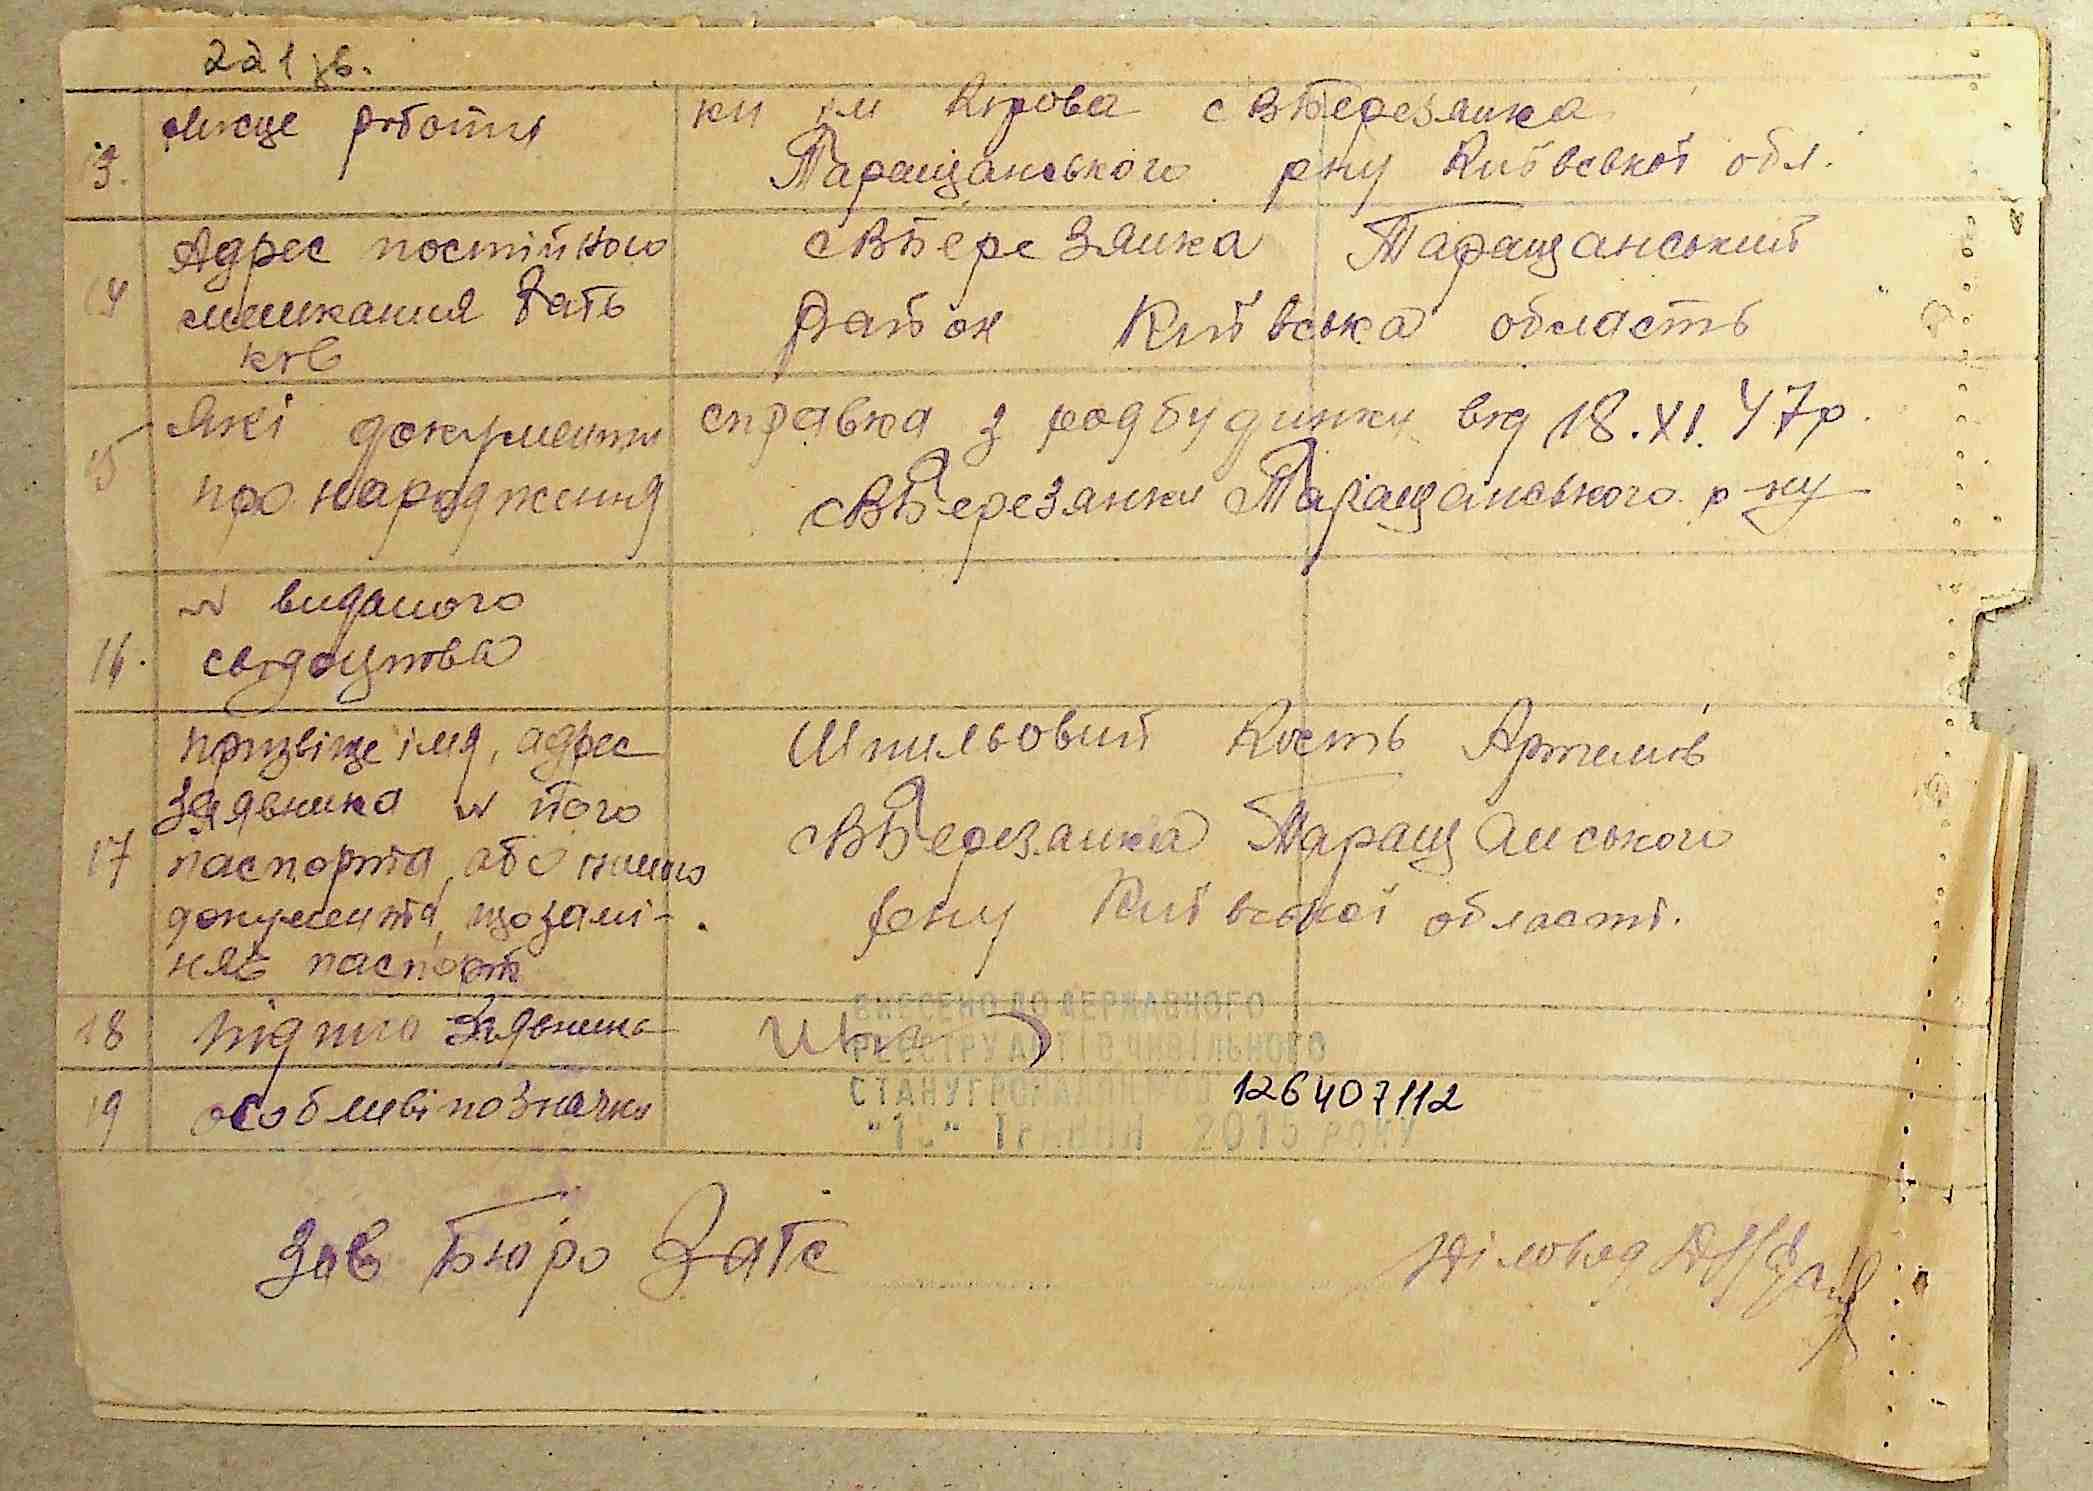 221 зв.
13. Місце роботи
кг ім Кірова с ВБерезянка
Таращанського рну Київської обл.
14 Адрес постійного
мешкання бать
ків
с ВБерезянка Таращанський
Район Київська область
15 Які документи
про народження
справка з родбудинку від 18.XI.47р.
с ВБерезянки Таращанського р-ну
16. № виданого
свідоцтва
17 призвіще імя, адрес
заявника № його
паспорта, або іншого
документа, що замі-
няє паспорт
Шпильовий Кость Артемів
с ВБерезянка Таращанського
рну Київської області.
18 підпис Заявника
ВНЕСЕНО ДО ДЕРЖАВНОГО
РЕЄСТРУ АКТІВ ЦИВІЛЬНОГО
СТАНУ ГРОМАДЯН 126407112
Травня 2015 РОКУ
19 особливі позначки
Зав Бюро Загс Діловод